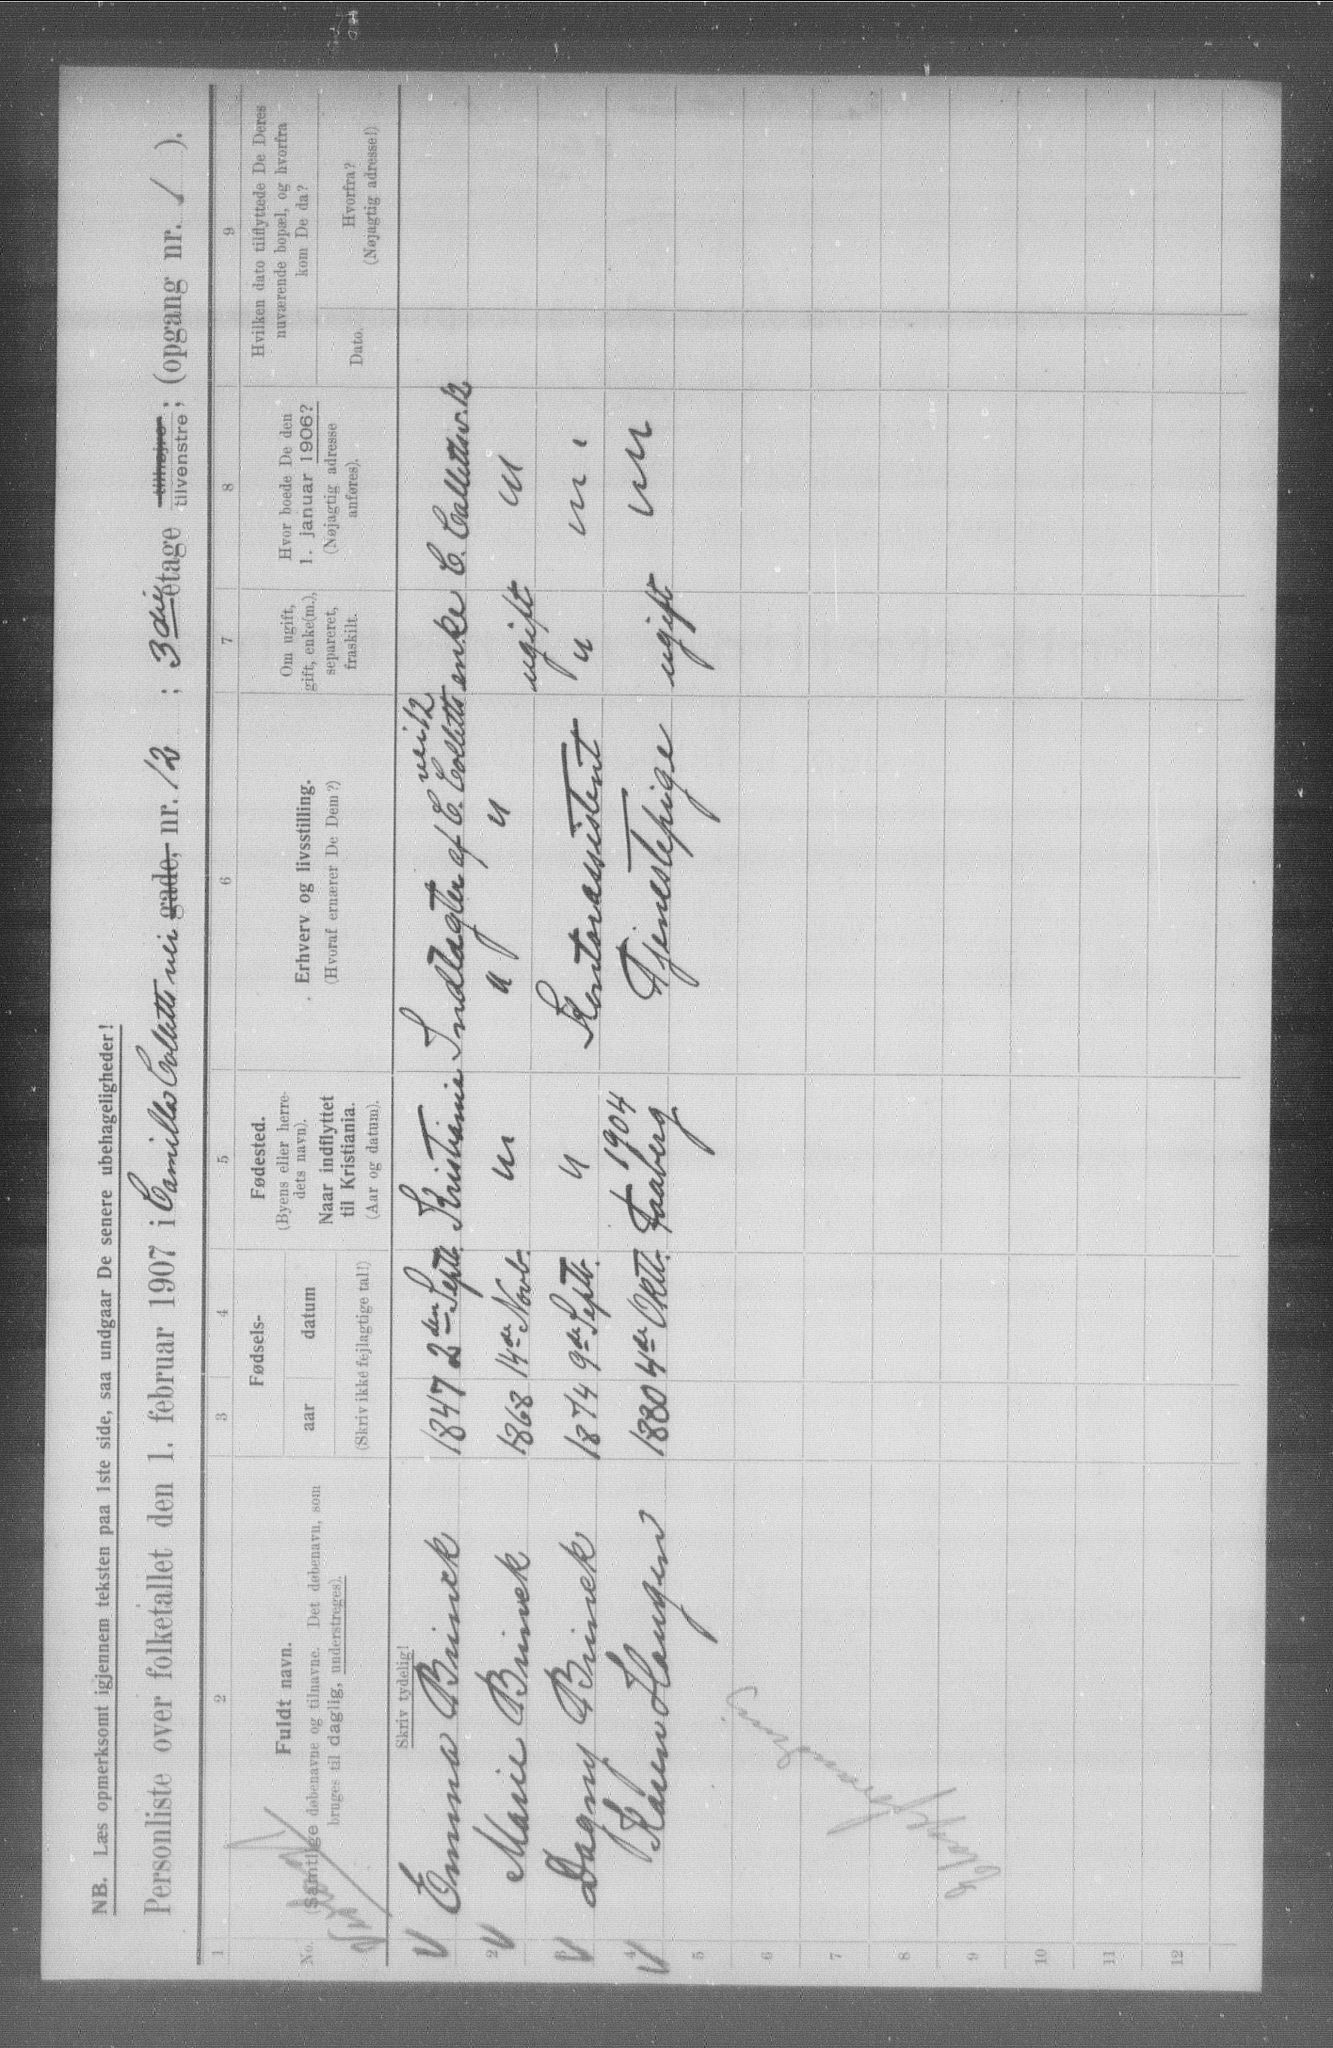 NB. Læs opmerksomt igjennem teksten paa 1ste side, saa undgaar De senere ubehageligheder!
Personliste over folketallet den 1. februar 1907 i Camilla Colletts vei gade, nr. 12 ; 3die etage tilhøjre tilvenstre ; (opgang nr. 1 ).
1 2 3 4 5 6 7 8 9
No.
Fuldt navn.
(Samtlige døbenavne og tilnavne. Det døbenavn, som
bruges til daglig, understreges).
Fødsels-
aar datum
(Skriv ikke fejlagtige tal!)
Fødested.
(Byens eller herre-
dets navn).
Naar indflyttet
til Kristiania.
(Aar og datum).
Erhverv og livsstilling.
(Hvoraf ernærer De Dem?)
Om ugift,
gift, enke(m.),
separeret,
fraskilt.
Hvor boede De den
1. januar 1906?
(Nøjagtig adresse
anføres).
Hvilken dato tilflyttede De Deres
nuværende bopæl, og hvorfra
kom De da?
Dato.
Hvorfra?
(Nøjagtig adresse!)
Skriv tydelig!
V Emma Brinck 1847 2den Septb. Kristiania Indtægter af C. Colletts vei 12 enke C. Collettsv. 12
2 V Marie Brinck 1868 14de Novb. " " " ugift "
3 V Dagny Brinck 1874 9de Septb. " Kontorassistent " " "
4 V Karen Haugen 1880 4de Oktb. Faaberg 1904 Tjenestepige ugift " "
5
6
7
8
9
10
11
12